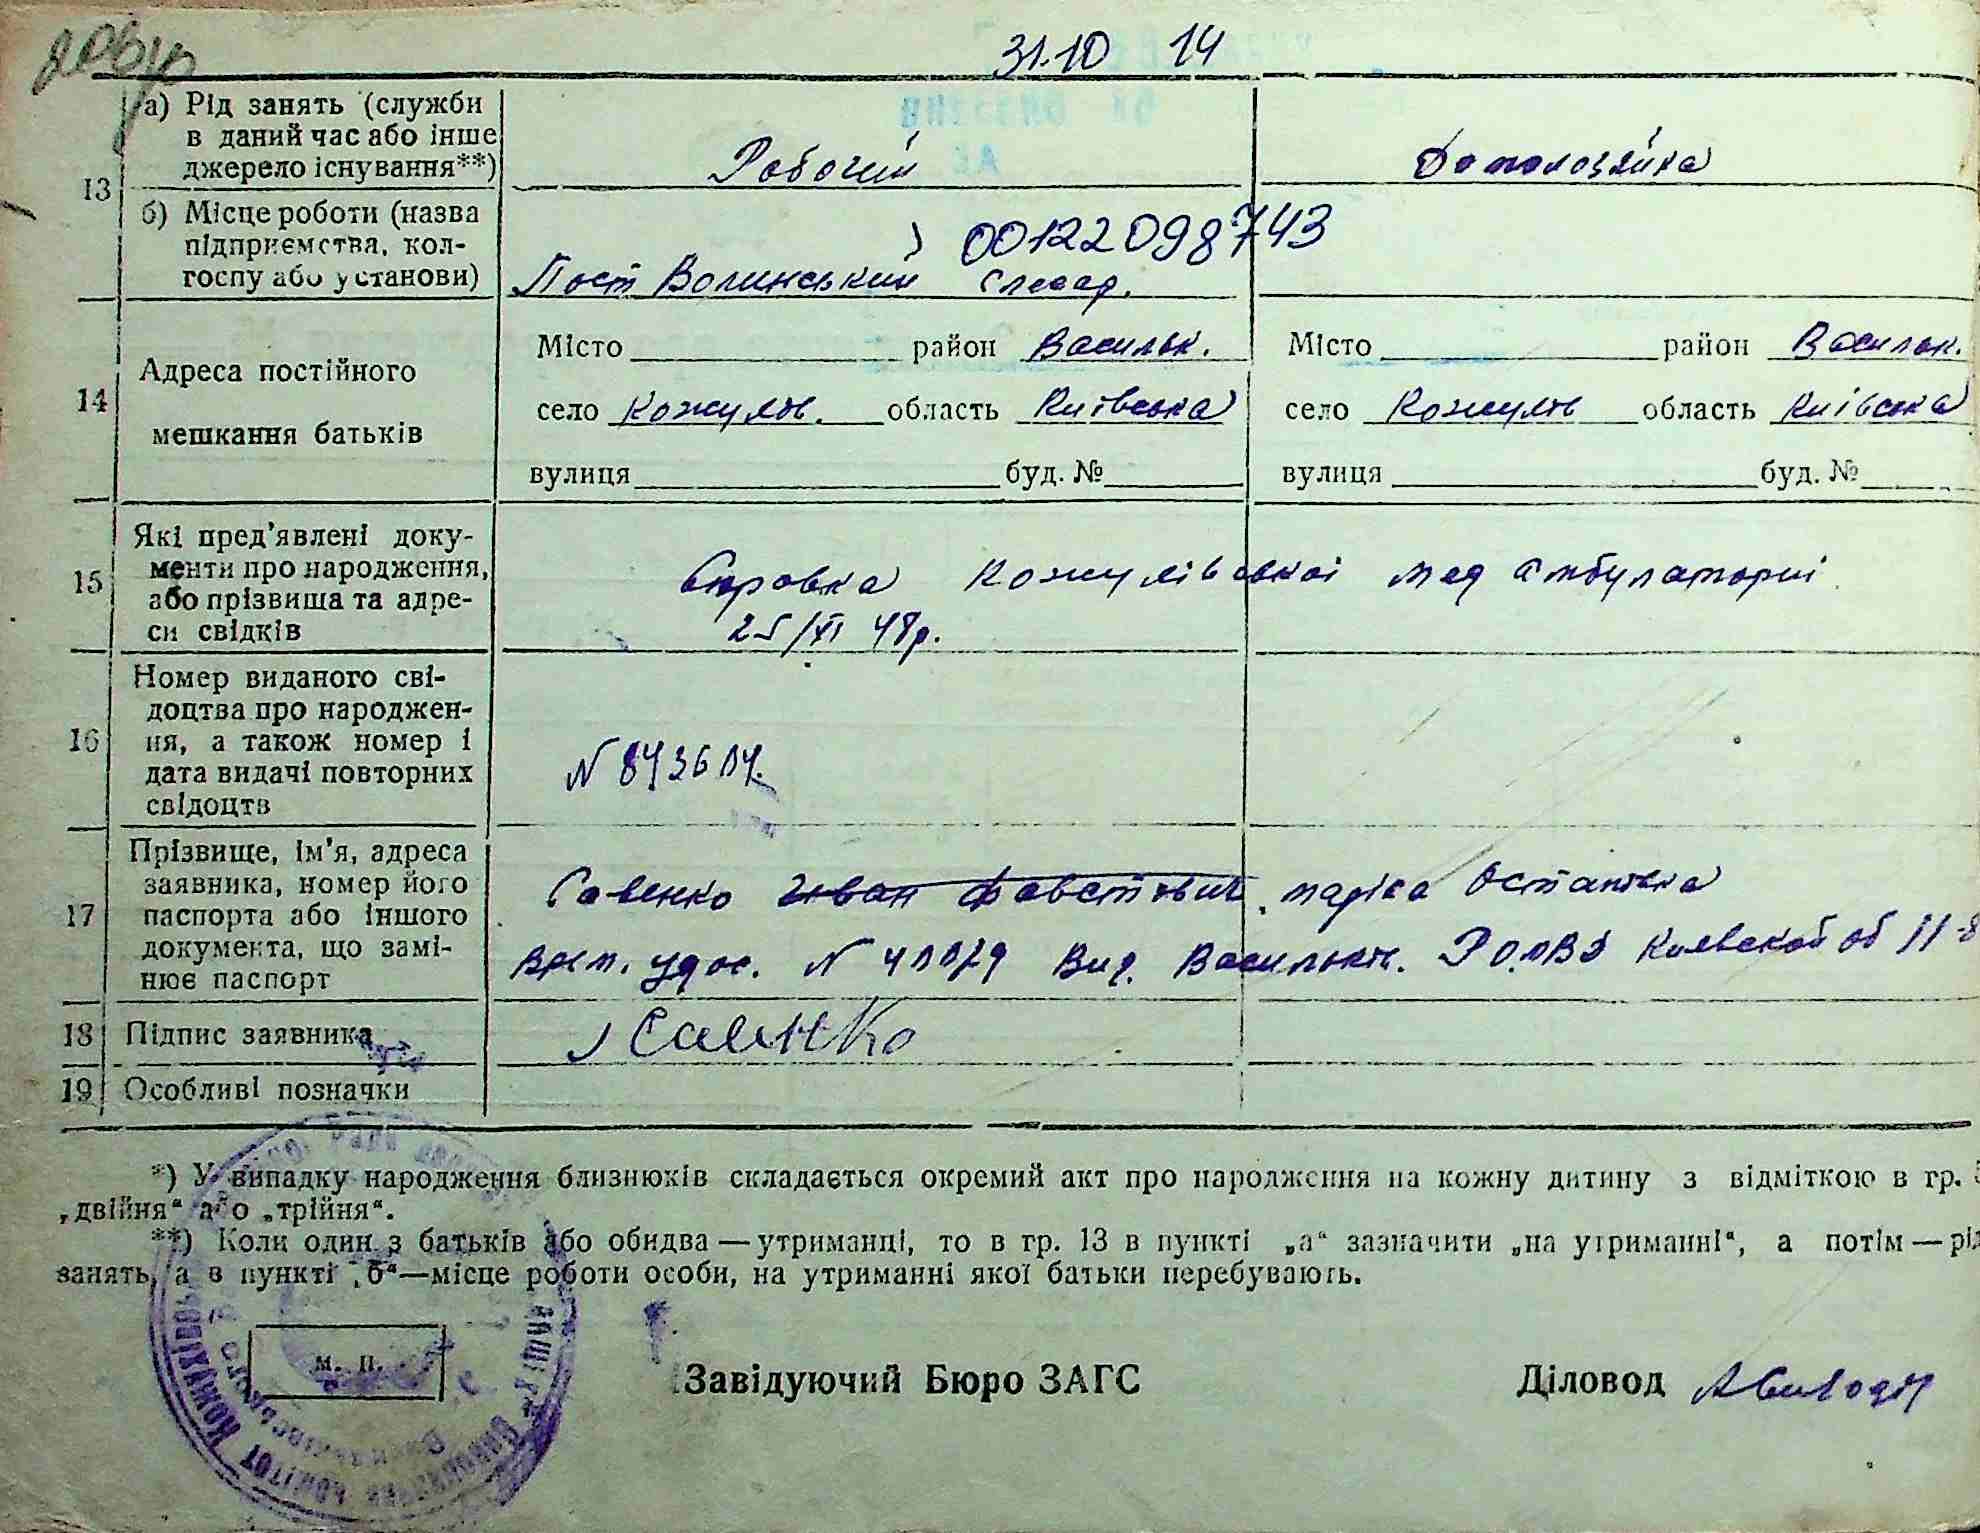 31.10 14
13
а) Рід занять (служби
в даний час або інше
джерело існування**)
Робочий
Домохозяйка
б) Місце роботи (назва
підприємства, кол-
госпу або установи)
00122098743
Пост Волинський Слесар.
14
Адреса постійного
мешкання батьків
Місто район Васильк.
село область Київська
вулиця буд. №
Місто район Васильк.
село область Київська
вулиця буд. №
15
Які пред'явлені доку-
менти про народження,
або прізвища та адре-
си свідків
мед амбулаторні
25/XI 48р.
16
Номер виданого сві-
доцтва про народжен-
ня, а також номер і
дата видачі повторних
свідоцтв
17
Прізвище, ім'я, адреса
заявника, номер його
паспорта або іншого
документа, що замі-
нює паспорт
Савенко Іван Фавстович, Марія Остаповна
Врем. удос. N Вид. Васильк. Киевской об
18
Підпис заявника
19
Особливі позначки
*) У випадку народження близнюків складається окремий акт про народження на кожну дитину з відміткою в гр. 5
„двійня“ або „трійня“.
**) Коли один з батьків або обидва — утриманці, то в гр. 13 в пункті „а“ зазначити „на утриманні“, а потім — рід
занять, а в пункті „б“—місце роботи особи, на утриманні якої батьки перебувають.
м. п.
Завідуючий Бюро ЗАГС
Діловод